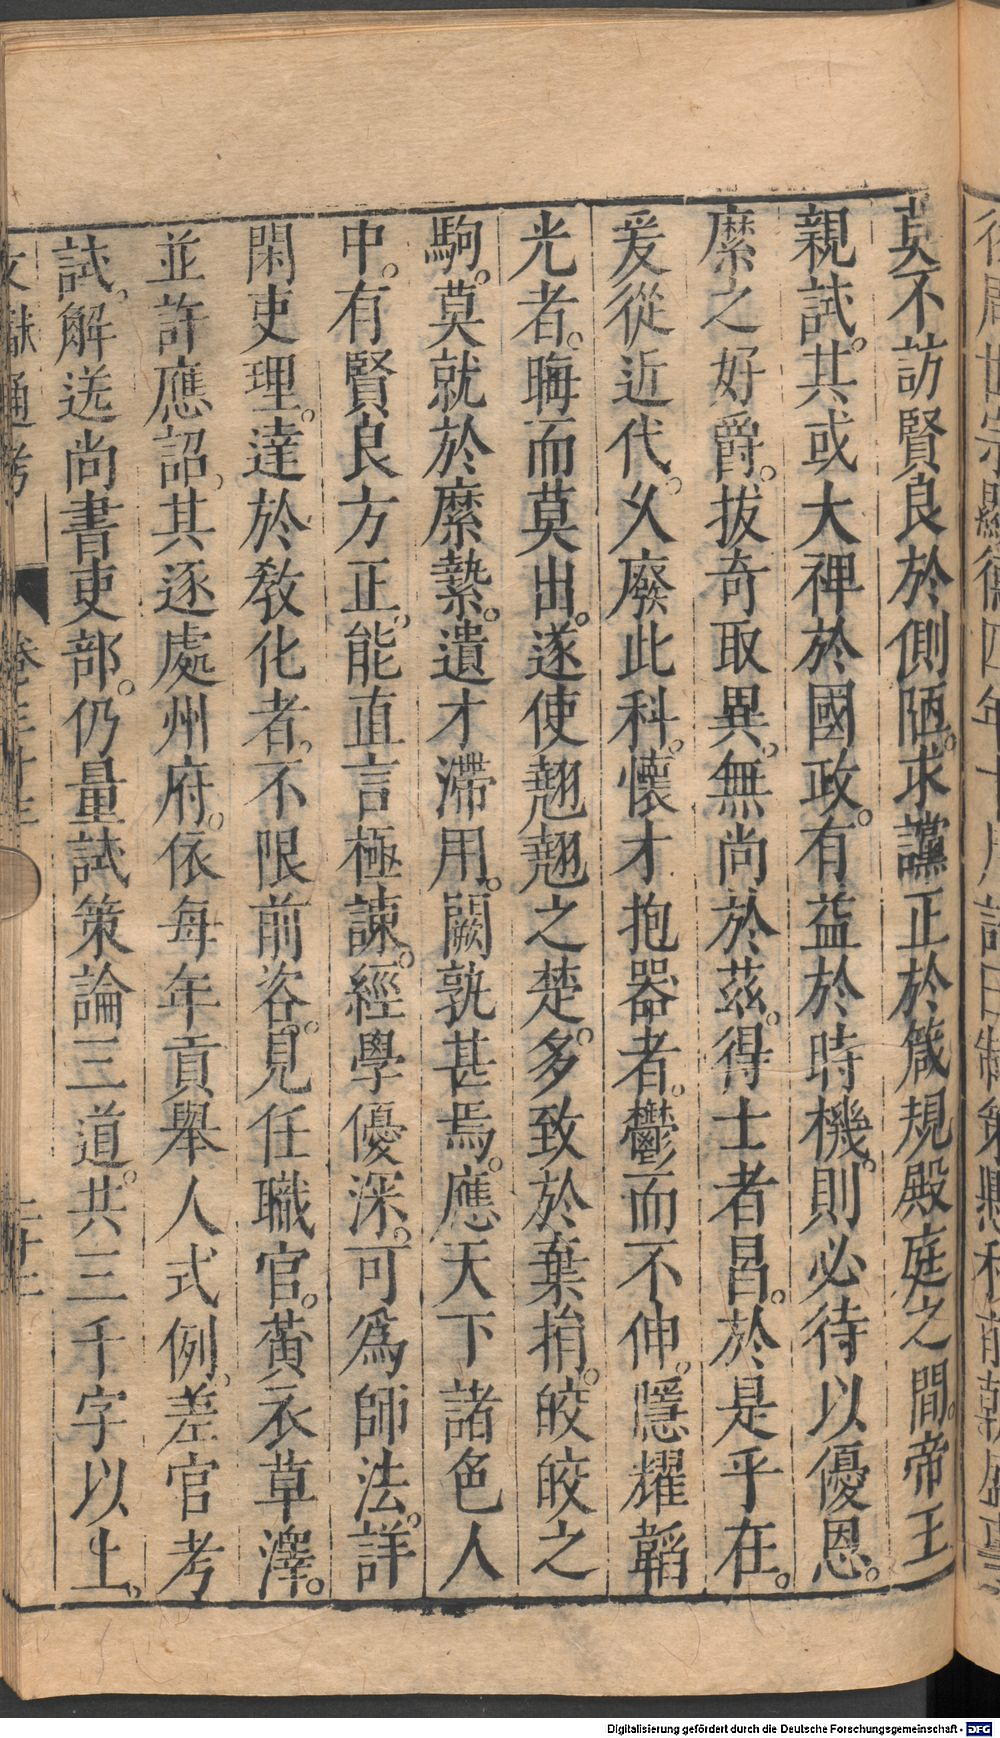 後周世宗顯德四年十月詔曰制策懸科前朝盛事
莫不訪賢良於側陋。求讜正於箴規殿庭之間。帝王
親試。其或大裨於國政。有益於時機。則必待以優恩。
縻之好爵。拔奇取異。無尚於茲。得士者昌。於是乎在。
爰從近代。乆廢此科。懷才抱器者。鬱而不伸。隱耀韜
光者。晦而莫出。遂使翹翹之楚。多致於棄捐。皎皎之
駒。莫就於縻縶。遺才滯用。闕孰甚焉。應天下諸色人
中。有賢良方正。能直言極諫。經學優深。可爲師法。詳
閑吏理。達於敎化者。不限前咨。見任職官。黃衣草澤。
並許應詔。其逐處州府。依每年貢舉人式例。差官考
試。解送尚書吏部。仍量試策論三道。共三千字以上。
文獻通考
Digitalisierung gefördert durch die Deutsche Forschungsgemeinschaft - DFG